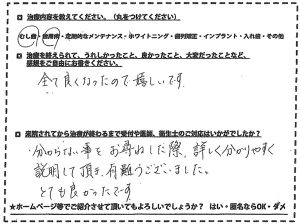 治療内容を教えてください。（丸をつけてください）
むし歯・歯周病・定期的なメンテナンス・ホワイトニング・歯列矯正・インプラント・入れ歯・その他
治療を終えられて、うれしかったこと、良かったこと、大変だったことなど、
感想をご自由にお書きください。
全て良くなったので嬉しいです
来院されてから治療が終わるまで受付や医師、衛生士のご対応はいかがでしたか？
分からない事をお尋ねした際、詳しく分かりやすく
説明して頂き、有難うございました。
とても良かったです
★ホームページ等でご紹介させて頂いてもよろしいでしょうか？ はい・匿名ならOK・ダメ